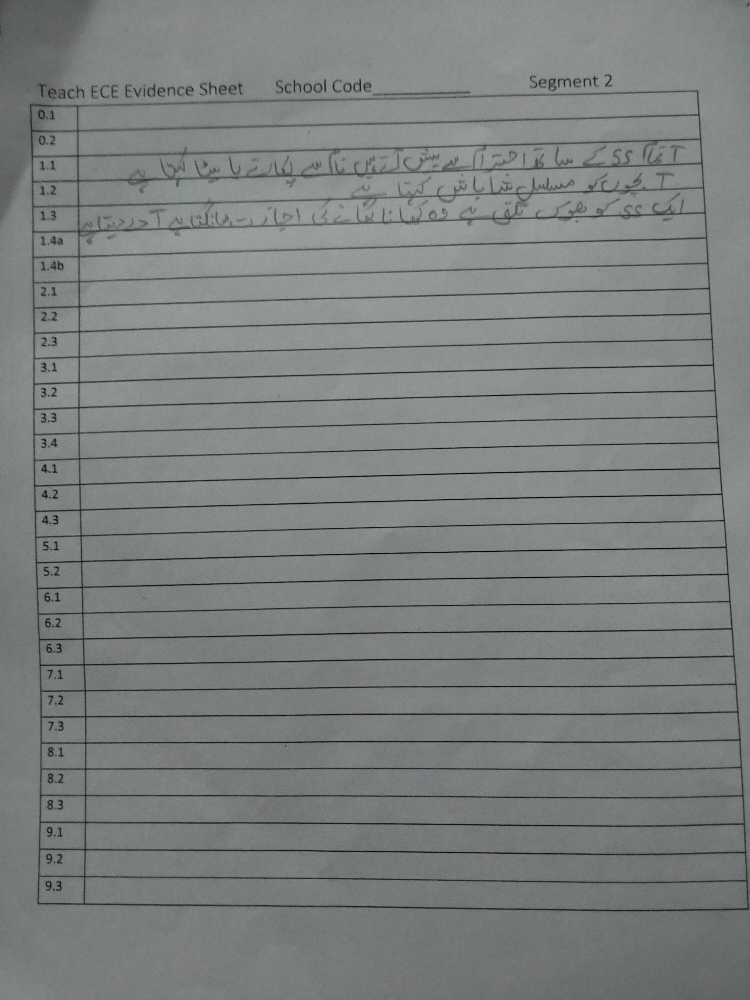 Teach ECE Evidence Sheet School Code__________ Segment 2
0.1
0.2
1.1 T تمام SS کے ساتھ احترام سے پیش آتے ہیں نام سے پکارتے یا بیٹا کہتا ہے
1.2 T بچوں کو مسلسل شاباش کہتا ہے
1.3 ایک SS کو بھوک لگتی ہے وہ کھانا کھانے کی اجازت مانگتا ہے T دے دیتا ہے
1.4a
1.4b
2.1
2.2
2.3
3.1
3.2
3.3
3.4
4.1
4.2
4.3
5.1
5.2
6.1
6.2
6.3
7.1
7.2
7.3
8.1
8.2
8.3
9.1
9.2
9.3